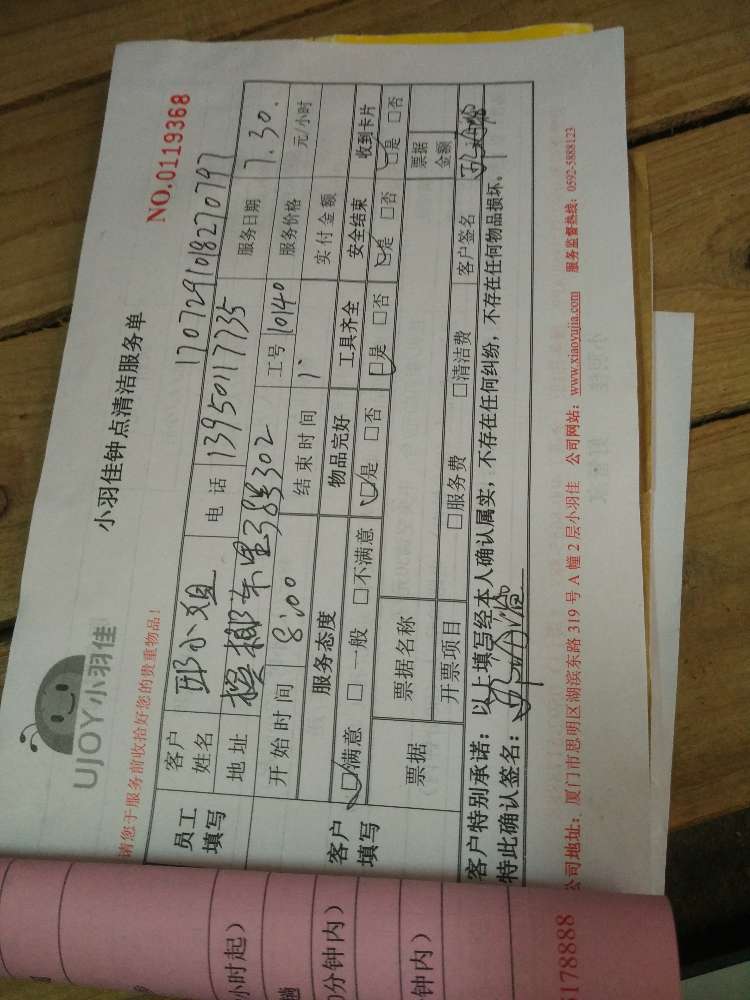 UJOY小羽佳
小羽佳钟点清洁服务单
NO.0119368
请您于服务前收拾好您的贵重物品!
1707291018270797
员工填写
客户姓名 邱小姐 电话 13950117735 服务日期 7.30.
地址 槟榔东里38号302
开始时间 8:00 工号 10140 服务价格 元/小时
结束时间 实付金额
客户填写
服务态度 物品完好 工具齐全 安全结束 收到卡片
□满意 □一般 □不满意 □是 □否 □是 □否 □是 □否 □是 □否
票据 票据名称 票据金额
开票项目 □服务费 □清洁费 客户签名
客户特别承诺:以上填写经本人确认属实,不存在任何纠纷,不存在任何物品损坏。
特此确认签名:
公司地址:厦门市思明区湖滨东路319号A幢2层小羽佳 公司网站:www.xiaoyujia.com 服务监督热线:0592-5888123
小时起)
趟
0分钟内)
钟内)
178888